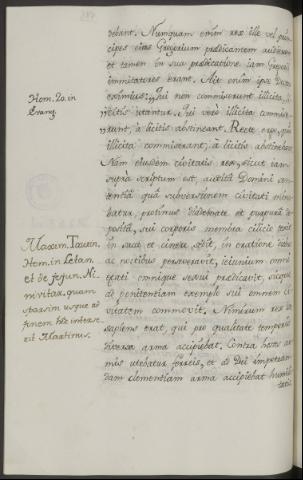 debant. Nunquam enim rex ille vel prin-
cipes ejus Gregorium prædicantem audierant
et tamen in sua prædicatione jam Gregorii
immitatores erant. Ait enim ipse Doctor
eximius: Qui non commiserunt illicita,
licitis utantur. Qui verò illicita commise-
runt, à licitis abstineant. Recte ergo, qui
illicita commiserant, à licitis abstinebant
Nam ejusdem civitatis rex, sicut jam
supra scriptum est, audita Domini sen-
tentiâ quâ subversionem civitati mina-
batur, protinus diademate et purpurâ de-
positâ, sui corporis membra cilicio texit
in sacco et cinere sedit, in oratione diebus
ac noctibus perseveravit, jejunium omni
ætati omnique sexui prædicavit, sicque
ad penitentiam exemplo sui omnem ci-
vitatem commovit. Nimirum rex ille
sapiens erat, qui pro qualitate temporis
diversa arma accipiebat. Contra hostes ar-
mis utebatur ferreis, et ad Dei impetran-
dam clementiam arma accipiebat humili-
tatis
Hom. 20. in
Evang.
Maxim. Taurin.
Hom. in Letan.
et de jejun. Ni-
nivitar. quam
sparsim usque ad
finem hic interse-
rit Martinus.